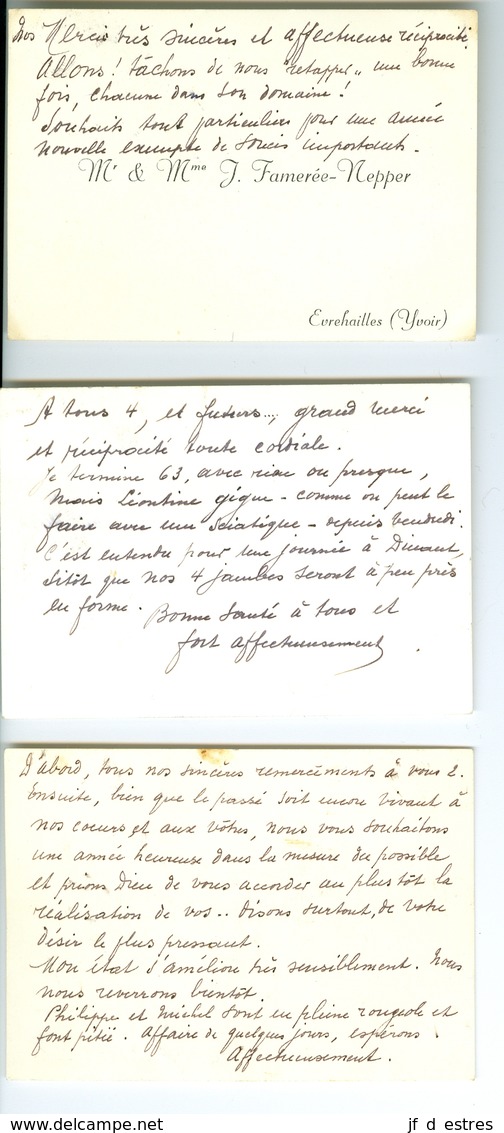 Nos Mercis très sincères et affectueuse réciprocité.
Allons! tâchons de nous "retapper" une bonne
fois, chacune dans son domaine!
Souhaits tout particuliers pour une année
nouvelle exempte de soucis importants.
Mr & Mme J. Famerée-Nepper
Evrehailles (Yvoir)
A tous 4, et futurs..., grand merci
et réciprocité toute cordiale.
Je termine 63, avec rien ou presque,
mais Léontine gigue - comme on peut le
faire avec une sciatique - depuis vendredi.
C'est entendu pour une journée à Dinant,
sitôt que nos 4 jambes seront à peu près
en forme. Bonne santé à tous et
fort affectueusement
D'abord, tous nos sincères remercîments à vous 2.
Ensuite, bien que le passé soit encore vivant à
nos coeurs et aux vôtres, nous vous souhaitons
une année heureuse dans la mesure du possible
et prions Dieu de vous accorder au plus tôt la
réalisation de vos.. disons surtout, de votre
désir le plus pressant.
Mon état s'améliore très sensiblement. Nous
nous reverrons bientôt.
Philippe et Michel sont en pleine rougeole et
font pitié. Affaire de quelques jours, espérons.
Affectueusement.
www.delcampe.net
jf_d_estres